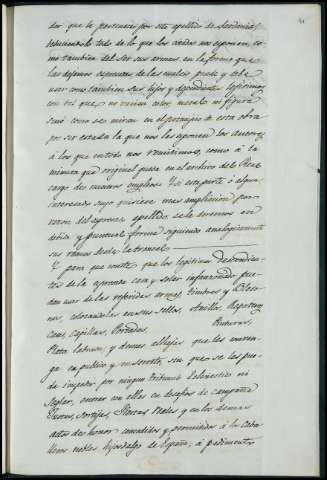 dor que le pertenecía por este apellido de Sardenia
deduciendolo todo de lo que los citados nos exponen, co-
mo tambien del ser sus armas en la forma que
las dejamos expuestas de las cuales puede y debe
usar como tambien sus hijos y descendientes legitimos
con tal que no varien color, metal, ni figura
sinó como se miran en el principio de esta obra
por ser estada la que nos exponen los autores
á los que en todo nos remitimos, como á la
minuta que original queda en el archivo de la Real
cargo de nuestro empleo: Y si esta parte ó alguno
interesado suyo quisiere mas ampliacion por
razon del expresado apellido se le daremos en
debida y puntual forma siguiendo analogicamente
sus ramos desde la troncal
Y para que conste que los legitimos descendien-
tes de la expresada casa y solar infanzonado pue-
dan usar de las referidas armas, timbres y Blaso-
nes, colocandolas en sus sellos, Anillos, Reposteros,
Casas, Capillas, Portadas, Pinturas,
Plata labrada, y demas alhajas que les conven-
ga en publico y en secreto, sin que se les pue-
da impedir por ningun tribunal Eclesiastico ni
Seglar, entrar con ellas en desafios de campaña
Justas, Sortijas, Fiestas Reales y en los demas
actos de honor concedidos y permitidos á los Caba-
lleros nobles hijosdalgo de España; á pedimento